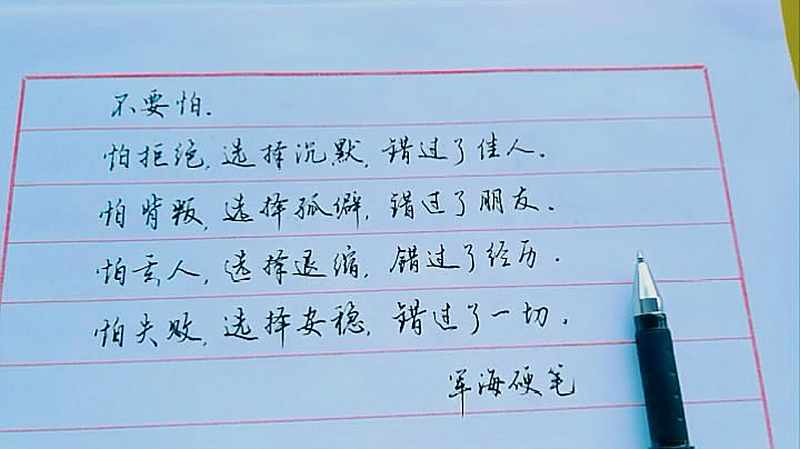 不要怕.
怕拒绝,选择沉默,错过了佳人.
怕背叛,选择孤僻,错过了朋友.
怕丢人,选择退缩,错过了经历.
怕失败,选择安稳,错过了一切.
军海硬笔